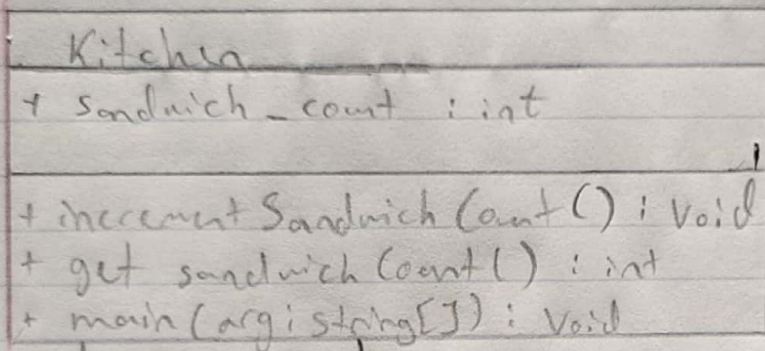 Kitchen
+ sandwich_count : int
+ incrementSandwichCount() : void
+ get sandwichCount() : int
+ main(arg: string[]) : void